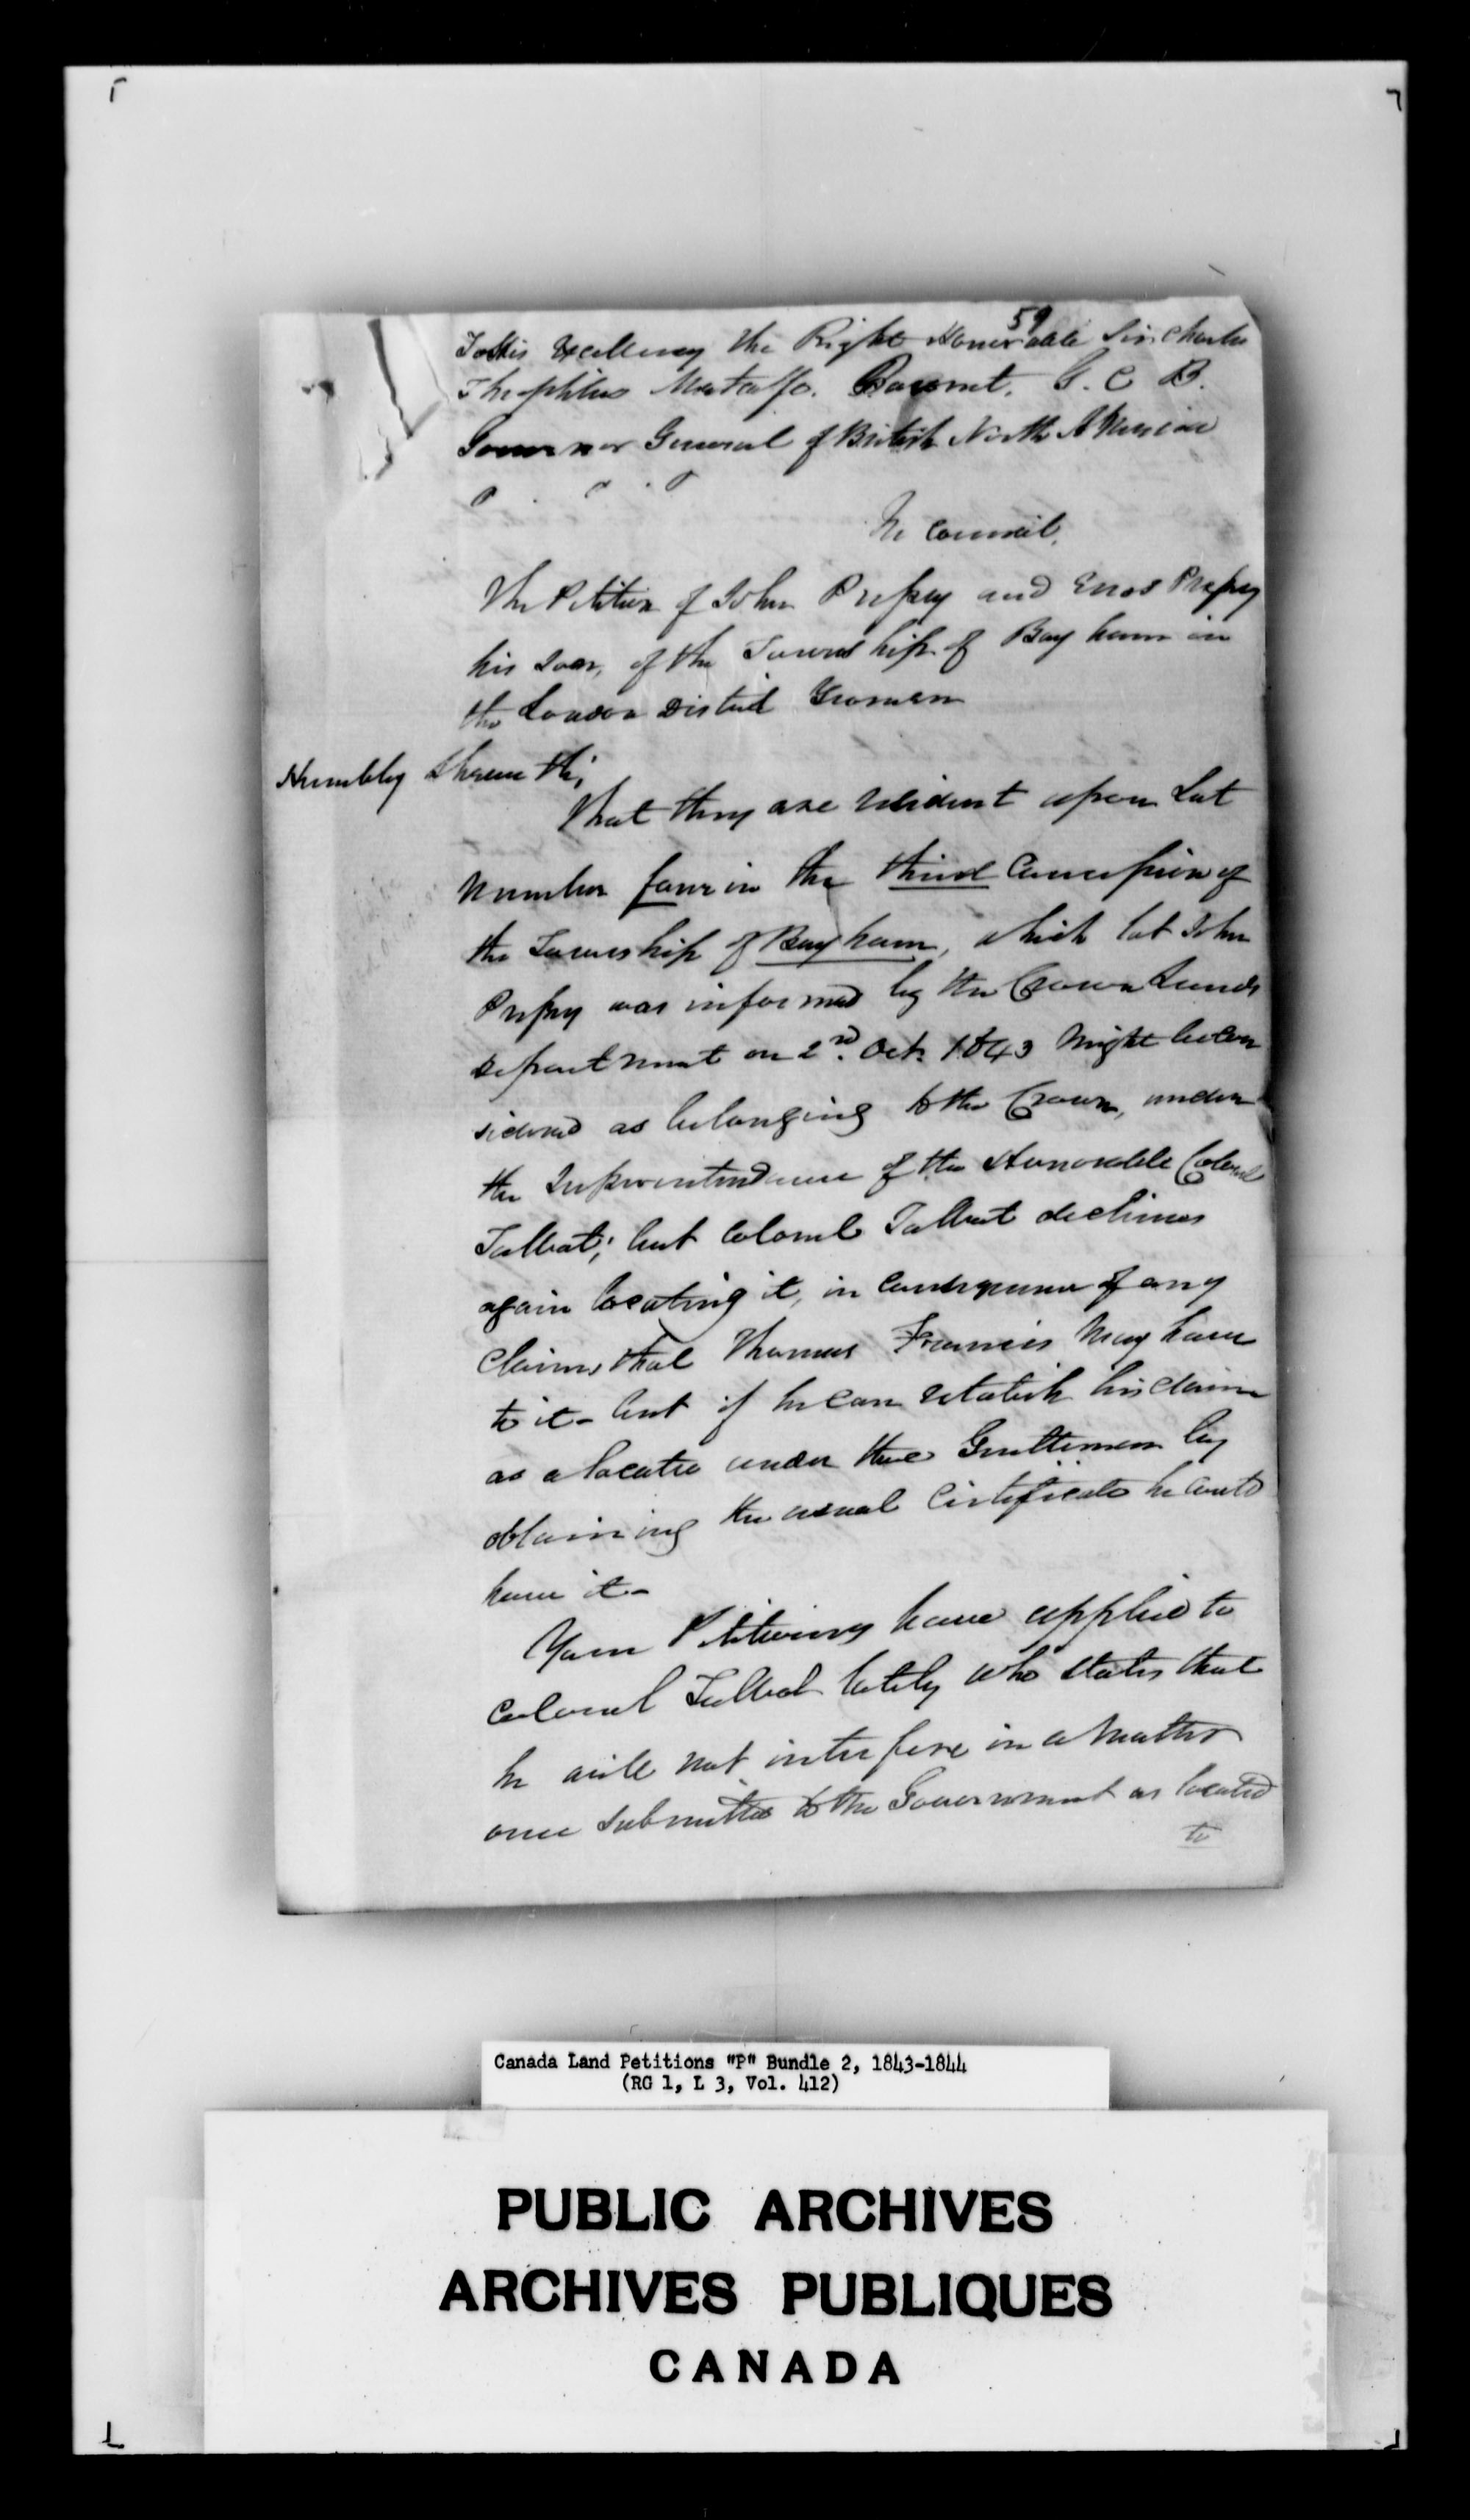 59
To His Excellency the Right Honorable Sir Charles
Theophilus Metcalfe. Baronet. G. C B.
Governor General of British North America
In Council.
The Petition of John and Enos
his Son, of the Township of Bayham in
the London District Yeomen
Humbly Sheweth;
That they are resident upon Lot
Number four in the third Concession of
the Township of Bayham, which lot John
was informed by the Crown Lands
Department on 2nd. Oct. 1843 might be con
sidered as belonging to the Crown, under
the Superintendance of the Honorable Colonel
Talbot; but Colonel Talbot declines
again locating it, in consequence of any
claims that Thomas Francis may have
to it - but if he can establish his claim
as a locatee under that Gentleman by
obtaining the usual Certificate he could
have it -
Your Petitioners have applied to
Colonel Talbot lately who states that
he will not interfere in a matter
once submitted to the Government as located
to
Canada Land Petitions "P" Bundle 2, 1843-1844
(RG 1, L 3, Vol. 412)
PUBLIC ARCHIVES
ARCHIVES PUBLIQUES
CANADA